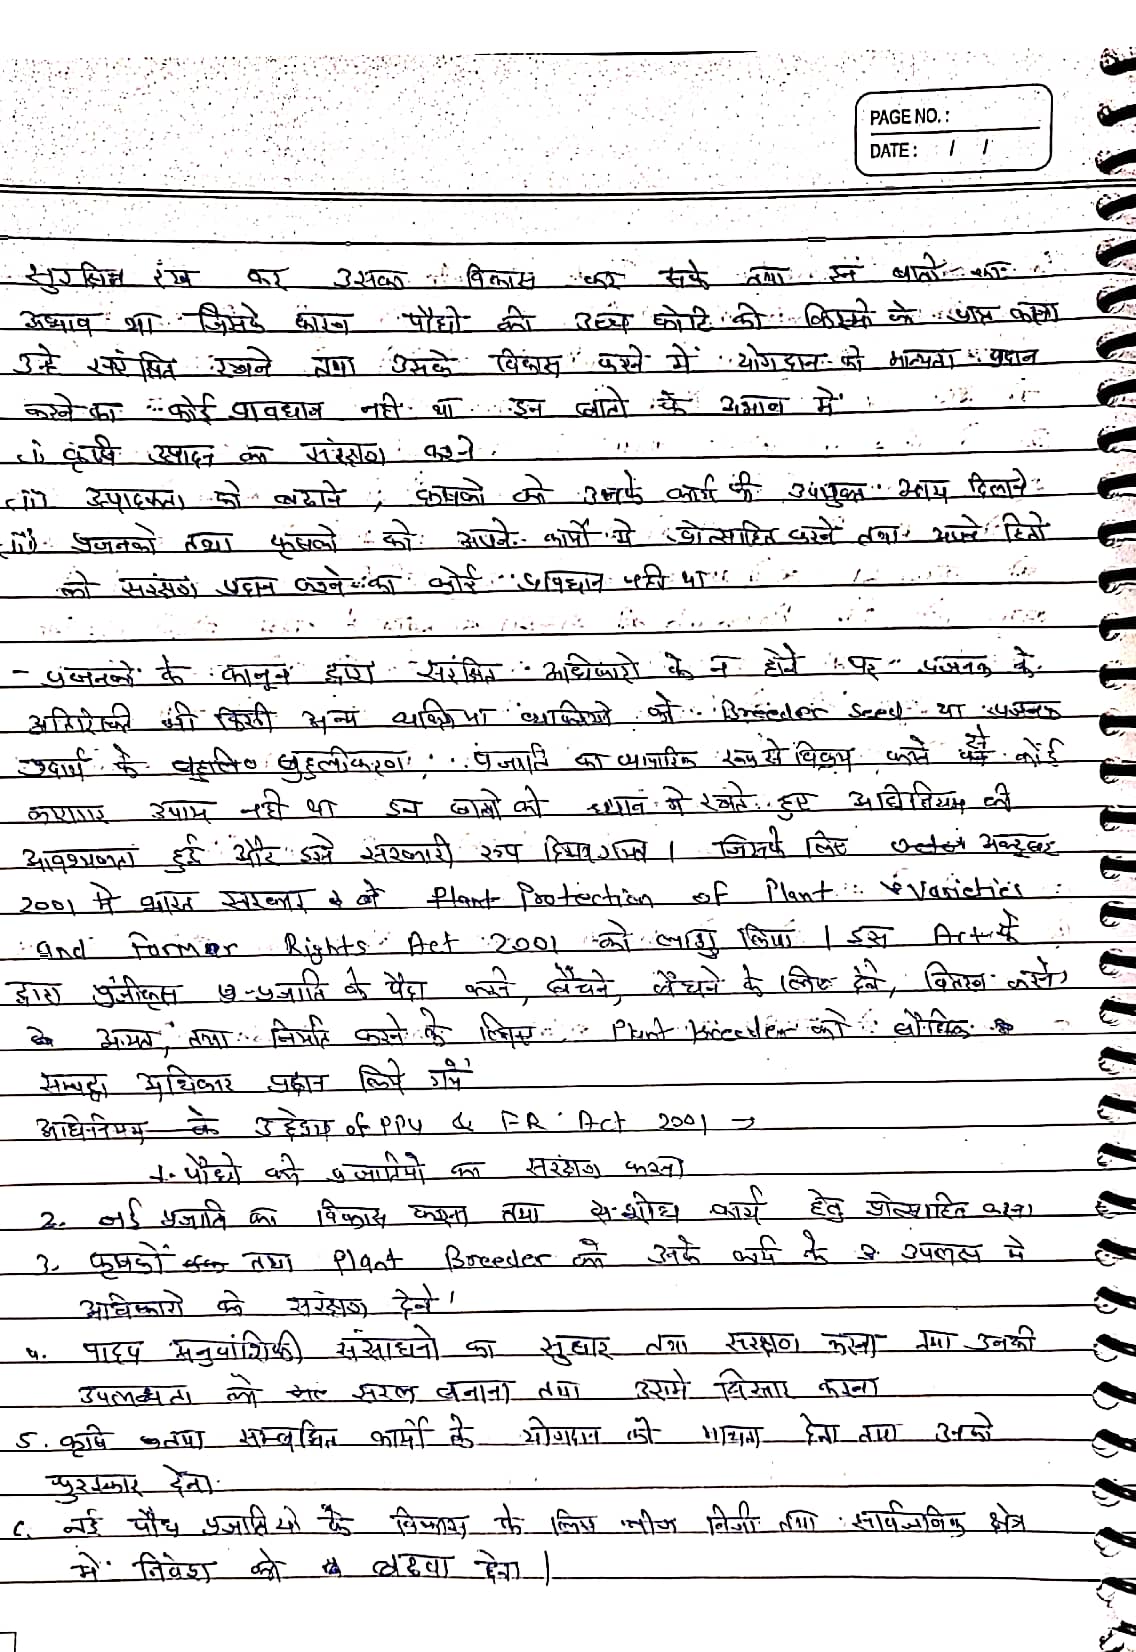 PAGE NO. :
DATE : / /
सुरक्षित रख कर उसका विकास कर सके तथा इन बातो का
अभाव था जिसके कारण पौधो की उच्च कोटि की किस्मो के प्राप्त करना
उन्हे संरक्षित रखने तथा उसके विकास करने में योगदान को मान्यता प्रदान
करने का कोई प्रावधान नही था इन बातो के अभाव में
(i) कृषि उत्पादन का संरक्षण करने
(ii) उत्पादकता को बढाने , कृषको को उनके कार्य की उपयुक्त आय दिलाने
(iii) प्रजनको तथा कृषको को अपने कार्यो मे प्रोत्साहित करने तथा अपने हितो
को संरक्षण प्रदान करने का कोई प्रावधान नही था
- प्रजनको के कानून द्वारा संरक्षित अधिकारो के न होने पर प्रजनक के
अतिरिक्त भी किसी अन्य व्यक्ति या व्यक्तियो को Breeder Seed या प्रजनक
पदार्थ के बहुलीकरण प्रजाति का व्यापारिक रूप से विक्रय करने से कोई
कारागर उपाय नही था इन बातो को ध्यान मे रखते हुए अधिनियम की
आवश्यकता हुई और इसे सरकारी रूप दिया गया । जिसके लिए अक्टूबर
2001 मे भारत सरकार ने Plant Protection of Plant Varieties
and Former Rights Act 2001 को लागु किया । इस Act के
द्वारा पंजीकृत प्रजाति के पैदा करने, बेंचने, बेंचने के लिए देने, वितरण करने
आयात, तथा निर्यात करने के लिए Plant breeder को बौधिक
सम्पदा अधिकार प्रदान किये गये
अधिनियम के उद्देश्य of PPV & FR Act 2001 →
1. पौधो की प्रजातियो का संरक्षण करना
2. नई प्रजाति का विकास करना तथा शोध कार्य हेतु प्रोत्साहित करना
3. कृषको तथा Plant Breeder को उनके कार्य के उपलक्ष मे
अधिकारो को संरक्षण देने ।
4. पादप अनुवांशिकी संसाधनो का सुधार तथा संरक्षण करना तथा उनकी
उपलब्धता को सरल बनाना तथा उसमे विस्तार करना
5. कृषि तथा सम्बंधित कार्यो के योगदान को मान्यता देना तथा उनको
पुरस्कार देना
6. नई पौध प्रजातियो के विकास के लिए बीज निजी तथा सार्वजनिक क्षेत्र
में निवेश को बढावा देना |